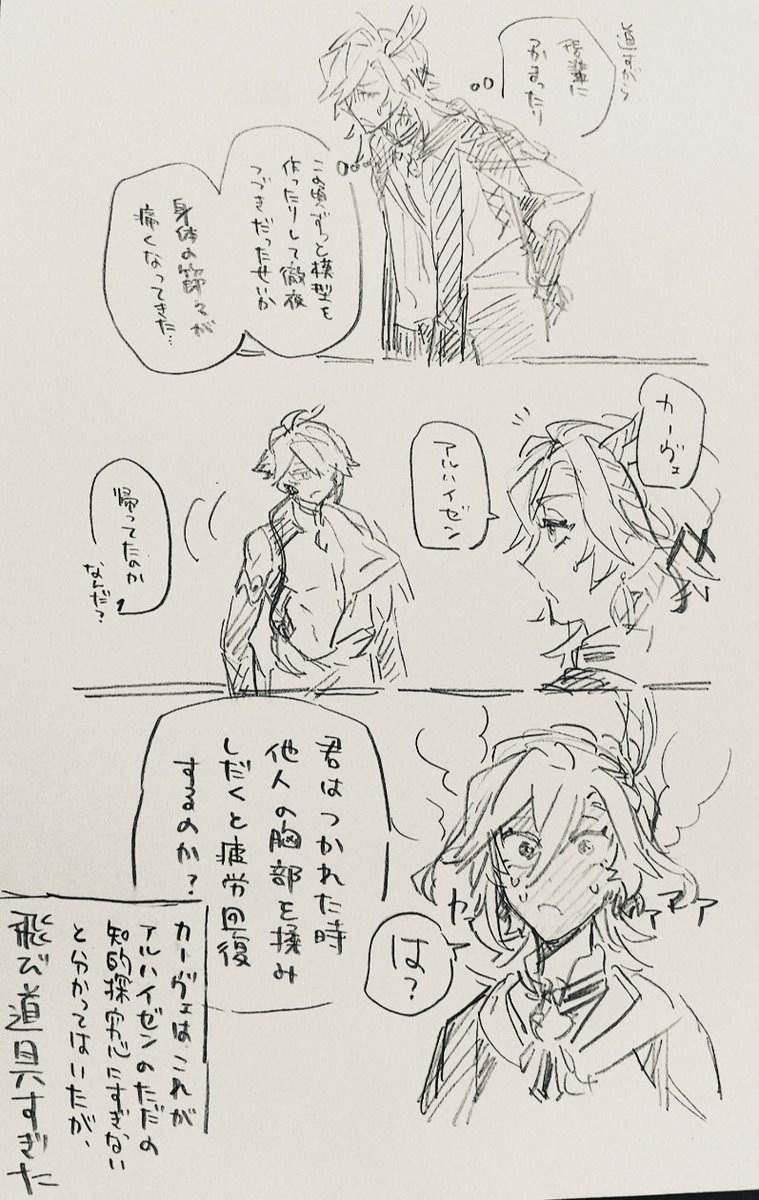 道すがら
後輩に
つかまったり
この頃ずっと模型を
作ったりして徹夜
つづきだったせいか
身体の節々が
痛くなってきた…
カーヴェ
アルハイゼン
帰ってたのか
なんだ?
君はつかれた時
他人の胸部を揉み
しだくと疲労回復
するのか?
は?
カァァァァ
カーヴェはこれが
アルハイゼンのただの
知的探究心にすぎない
と分かってはいたが、
飛び道具すぎた